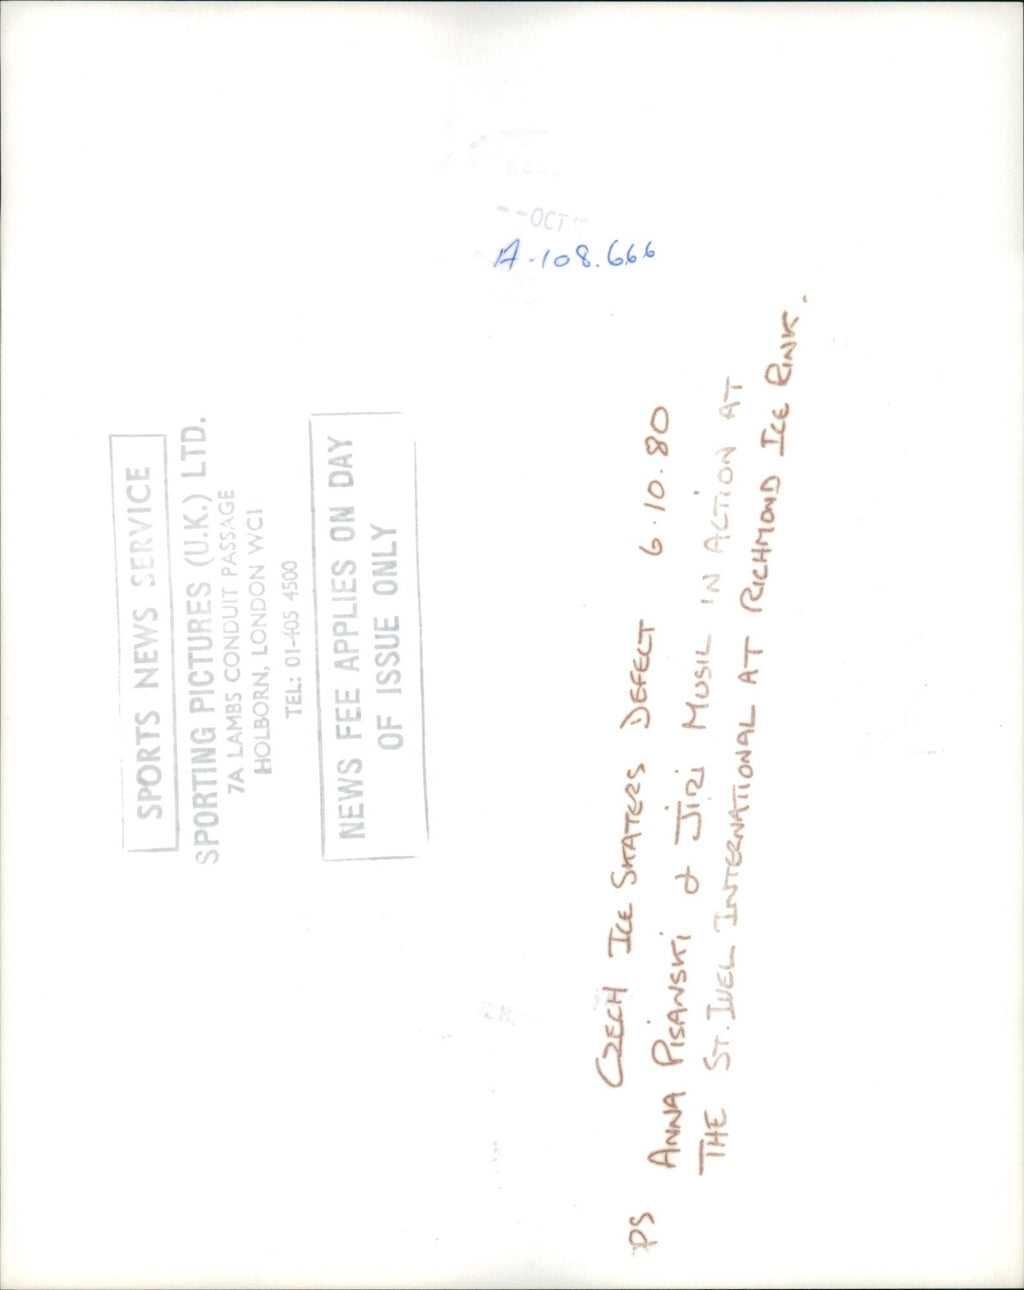 SPORTS NEWS SERVICE
SPORTING PICTURES (U.K.) LTD.
7A LAMBS CONDUIT PASSAGE
HOLBORN, LONDON WC1
TEL: 01-405 4500
NEWS FEE APPLIES ON DAY
OF ISSUE ONLY
OCT
A.108.666
PS CZECH ICE SKATERS DEFECT 6.10.80
ANNA PISANSKI & JIRI MUSIL IN ACTION AT
THE ST. IVEL INTERNATIONAL AT RICHMOND ICE RINK.